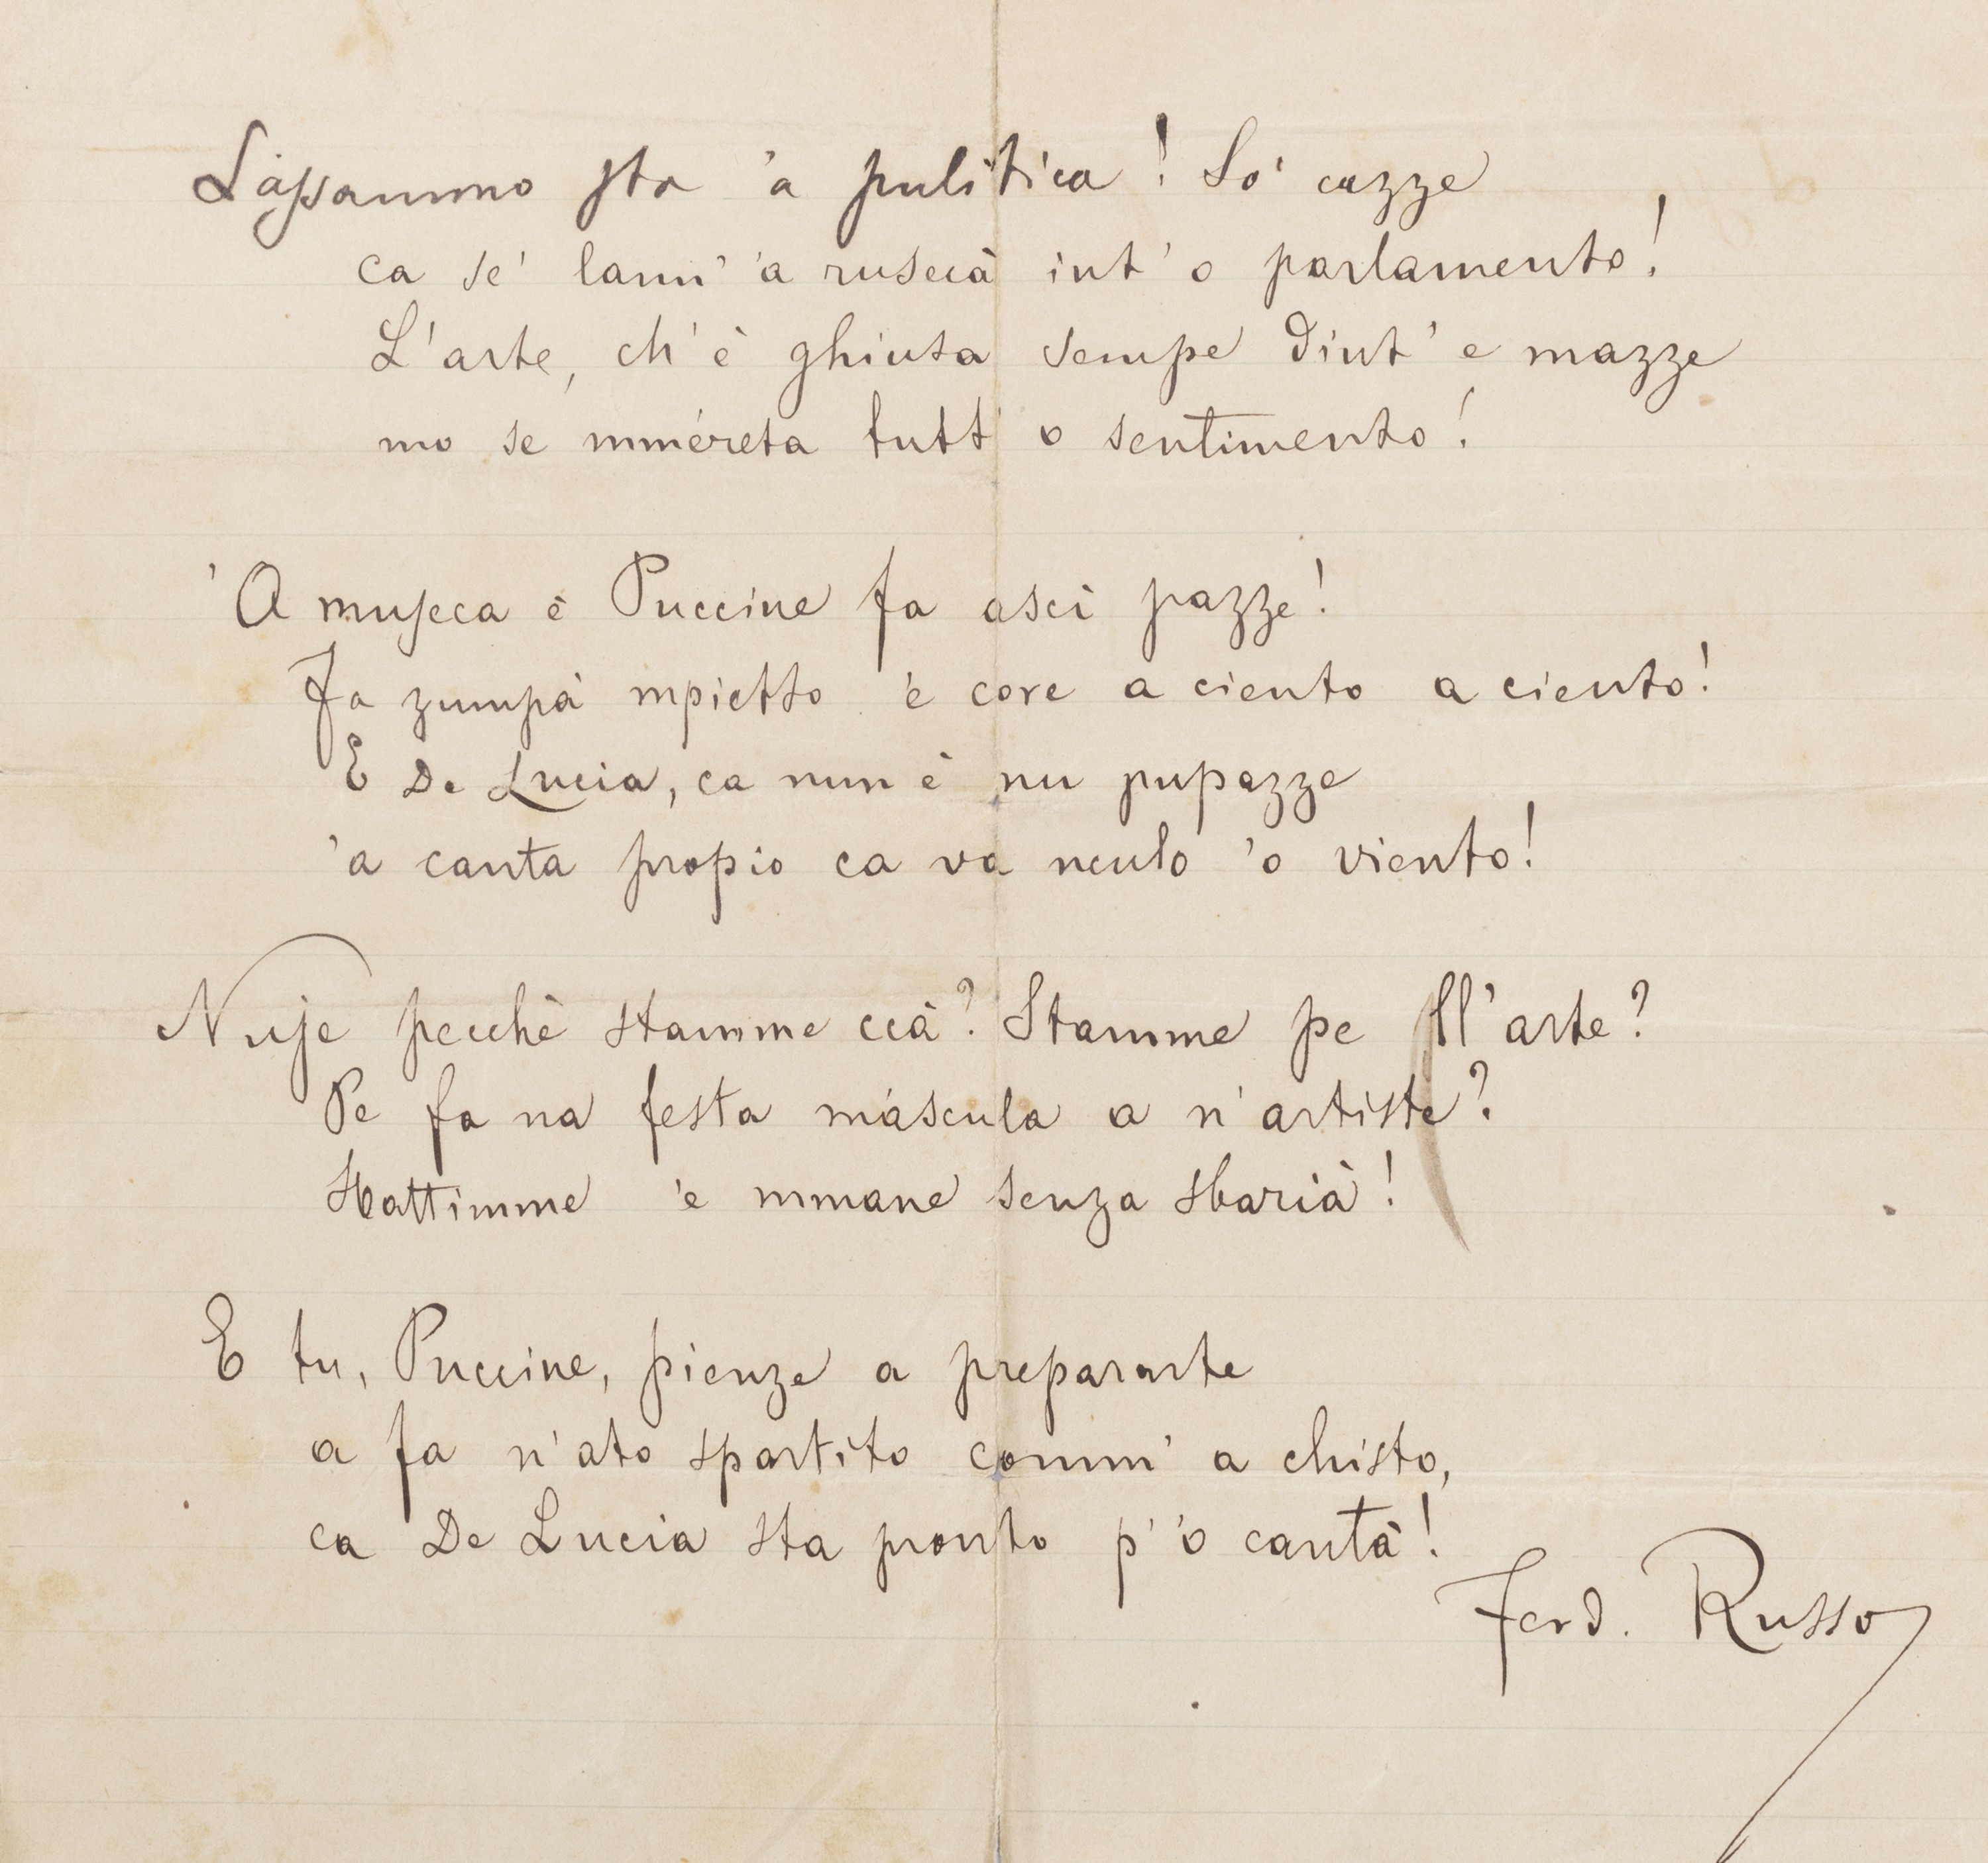 Lassammo sta 'a pulitica! So' cazze
ca se' lann' 'a ruscà int' o parlamento!
L'arte, ch'è ghiuta sempe dint' e mazze
mo se mméreta tutt' o sentimento!
'A museca 'e Puccine fa ascì pazze!
Fa zumpà mpietto 'e core a ciento a ciento!
E De Lucia, ca nun è nu pupazze
'a canta propio ca va nculo 'o viento!
Nuje pecchè stamme ccà? Stamme pe ll'arte?
Pe fa na festa màscula a n'artiste?
Sbattimme 'e mmane senza sbarià!
E tu, Puccine, pienze a prepararte
a fa n'ato spartito comm' a chisto,
ca De Lucia sta pronto p' 'o cantà!
Ferd. Russo